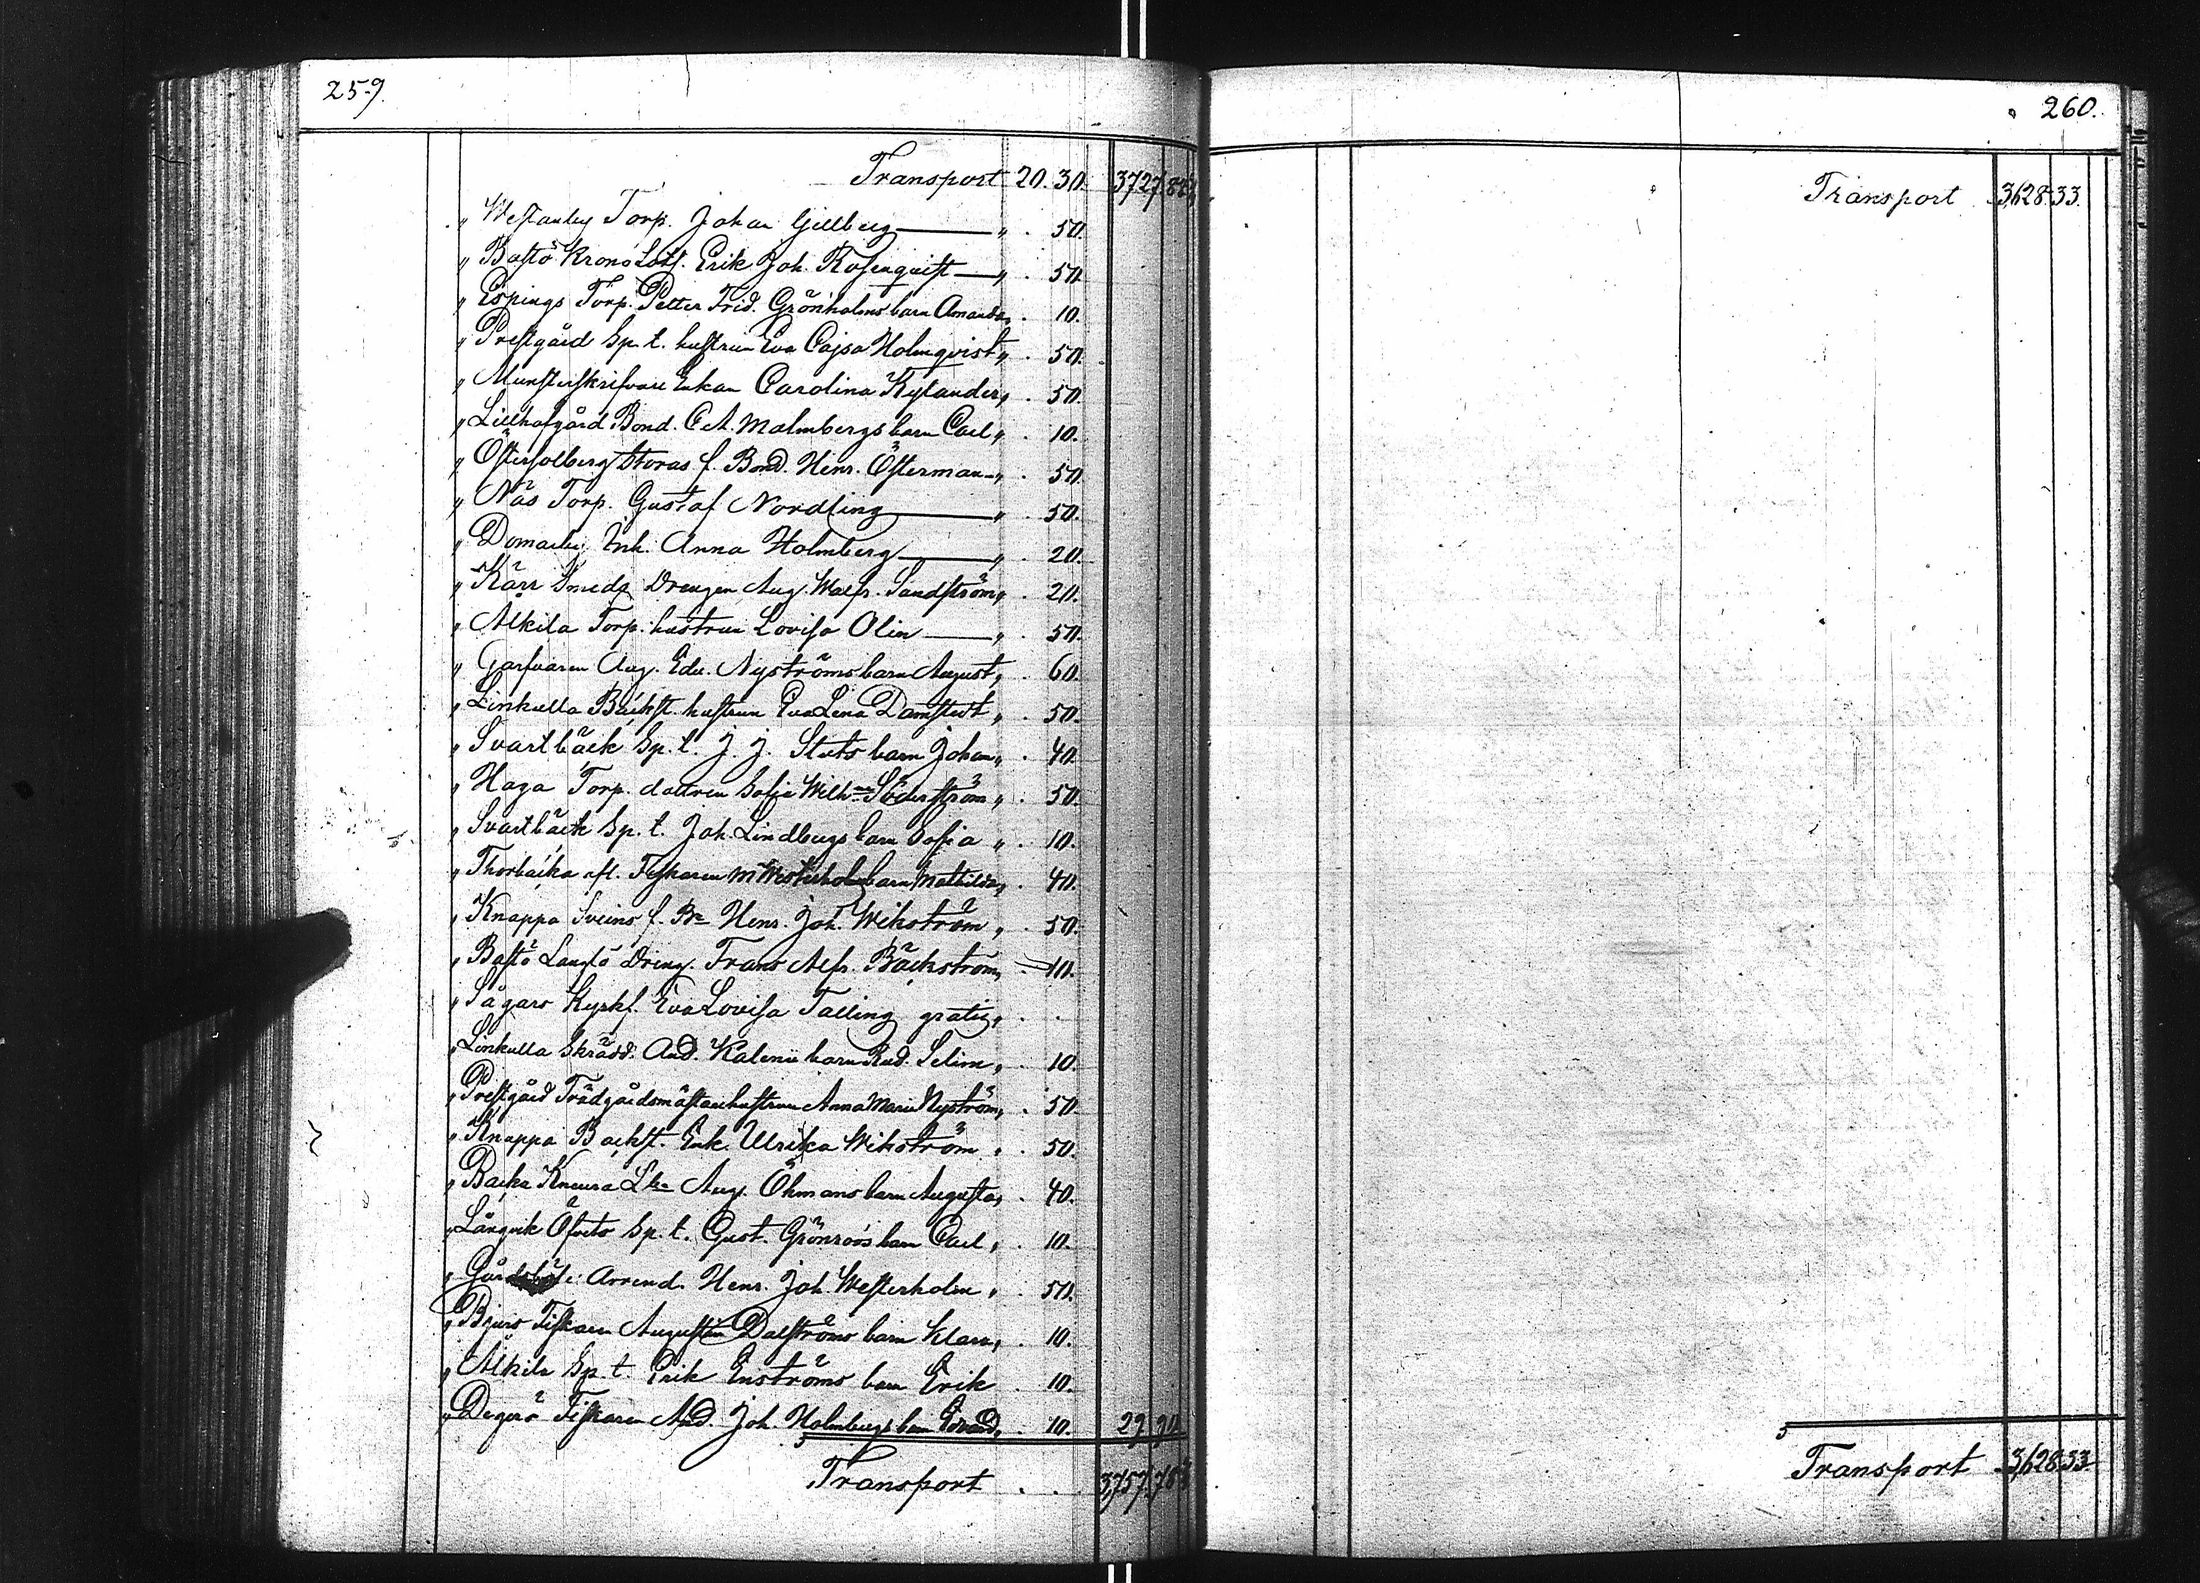 259.
Transport 20.30. 3727 88
" Westanby Torp. Johan Gillberg " . 50.
" Bastö Krono Lots. Erik Joh. Rosenqvist " . 50.
" Espings Torp. Petter Frid. Grönholms barn Amanda " . 10.
" Prestgård Sp. t. hustrun Eva Cajsa Holmqvist " . 50.
" Munsterskrifvare Enkan Carolina Kylander " . 50.
" Lillhofgård Bond. C A. Malmbergs barn Carl " . 10.
" Östersolberg Storas f. Bond. Henr. Österman " . 50.
" Näs Torp. Gustaf Nordling " . 50.
" Domarby Inh. Anna Holmberg " . 20.
" Kärr Smeds Drengen Aug. Walfr. Sandström " . 20.
" Alkila Torp. hustrun Lovisa Olin " . 50.
" Garfvaren Aug. Edv. Nyströms barn August " . 60.
" Linkulla Backst. hustrun Eva Lena Damstedt " . 50.
" Svartbäck Sp. t. J. J. Stuts barn Johan " . 40.
" Haga Torp. dottren Sofia Wilh:na Söderström " . 50.
" Svartbäck Sp. t. Joh. Lindbergs barn Sofia " . 10.
" Thorbacka afl. Fiskaren M Westerholms barn Mathilda " . 40.
" Knappa Sveins f. Bn Henr. Joh. Wikström " . 50.
" Bastö Langlö Dreng. Frans Alfr. Bäckström " 10.
" Sågars Kyrkf. Eva Lovisa Talling gratis " . .
" Linkulla Skrädd. And. Kalenii barn Rud. Selim " . 10.
" Prestgård Trädgårdsmästarehustrun Anna Maria Nyström " . 50
" Knappa Backst. Enk. Ulrika Wikström " . 50.
" Backa Kneura Lbn Aug. Öhmans barn Augusta " . 40.
" Långvik Öfvits Sp. t. Gust. Grönroos barn Carl " . 10.
" Arrend. Henr. Joh. Westerholm " . 50.
" Bjurs Fiskarn Augustin Dalströms barn Klara " . 10.
" Alkila Sp t. Erik Enströms barn Erik . 10.
" Degerö Fiskaren And. Joh. Holmbergs barn Edvard " . 10. 29 90
Transport . . . 3,757. 78
260.
Transport 3,628.33.
Transport 3,628.33.